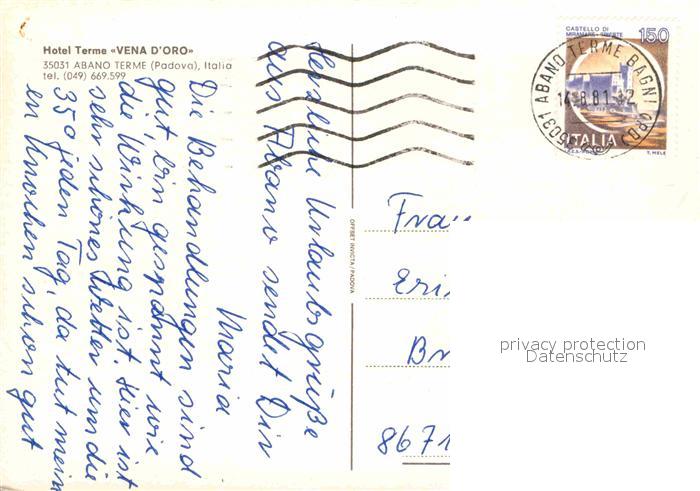 Hotel Terme «VENA D'ORO»
35031 ABANO TERME (Padova), Italia
tel. (049) 669.599
Herzliche Urlaubsgrüße
aus Abano sendet Dir
Maria
Die Behandlungen sind
gut, bin gespannt wie
die Wirkung ist. Hier ist
sehr schönes Wetter um die
35° jeden Tag, da tut mein
en Knochen schon gut
OFFSET INVICTA / PADOVA
CASTELLO DI
MIRAMARE - TRIESTE
150
ITALIA
T. MELE
35031 ABANO TERME BAGNI (PD)
14.8.81
Frau
Eri
Br
8671
privacy protection
Datenschutz